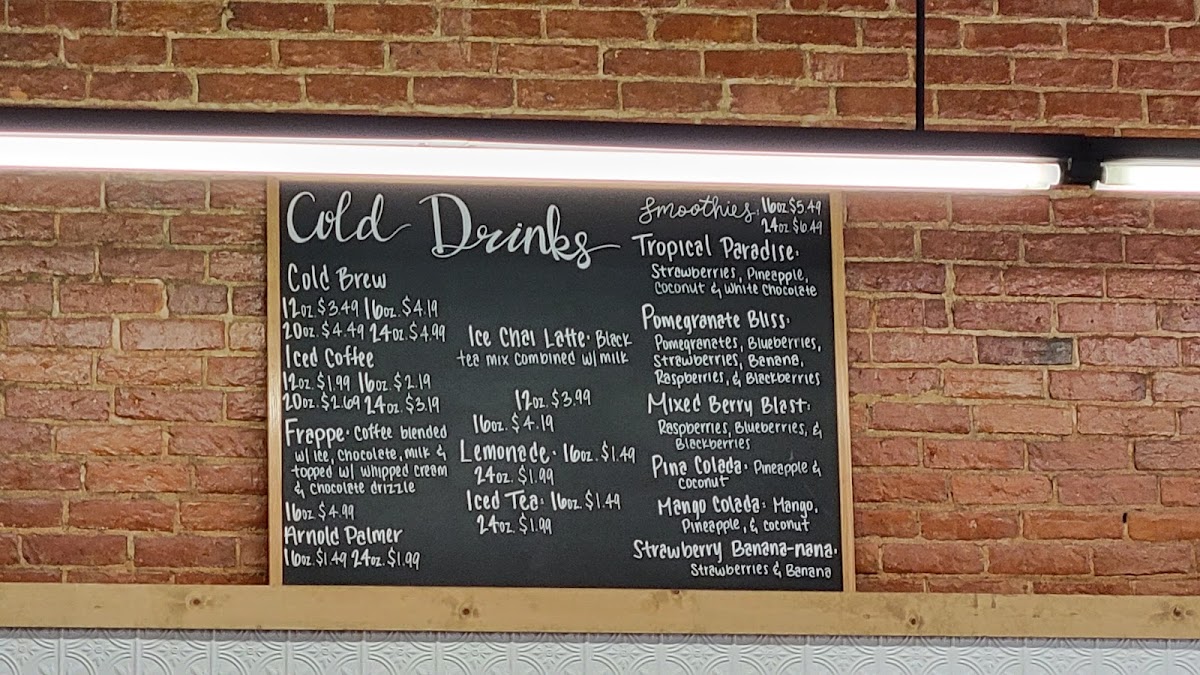 Cold Drinks
Cold Brew
12oz. $3.49 16oz. $4.19
20oz. $4.49 24oz. $4.99
Iced Coffee
12oz. $1.99 16oz. $2.19
20oz. $2.69 24oz. $3.19
Frappe· Coffee blended
w/ ice, chocolate, milk &
topped w/ whipped cream
& chocolate drizzle
16oz. $4.99
Arnold Palmer
16oz. $1.49 24oz. $1.99
Ice Chai Latte· Black
tea mix combined w/ milk
12oz. $3.99
16oz. $4.19
Lemonade· 16oz. $1.49
24oz. $1.99
Iced Tea: 16oz. $1.49
24oz. $1.99
Smoothies: 16oz. $5.49
24oz. $6.49
Tropical Paradise:
Strawberries, Pineapple,
Coconut & White Chocolate
Pomegranate Bliss:
Pomegranates, Blueberries,
Strawberries, Banana,
Raspberries, & Blackberries
Mixed Berry Blast:
Raspberries, Blueberries, &
Blackberries
Pina Colada: Pineapple &
Coconut
Mango Colada: Mango,
Pineapple, & coconut
Strawberry Banana-nana:
Strawberries & Banana